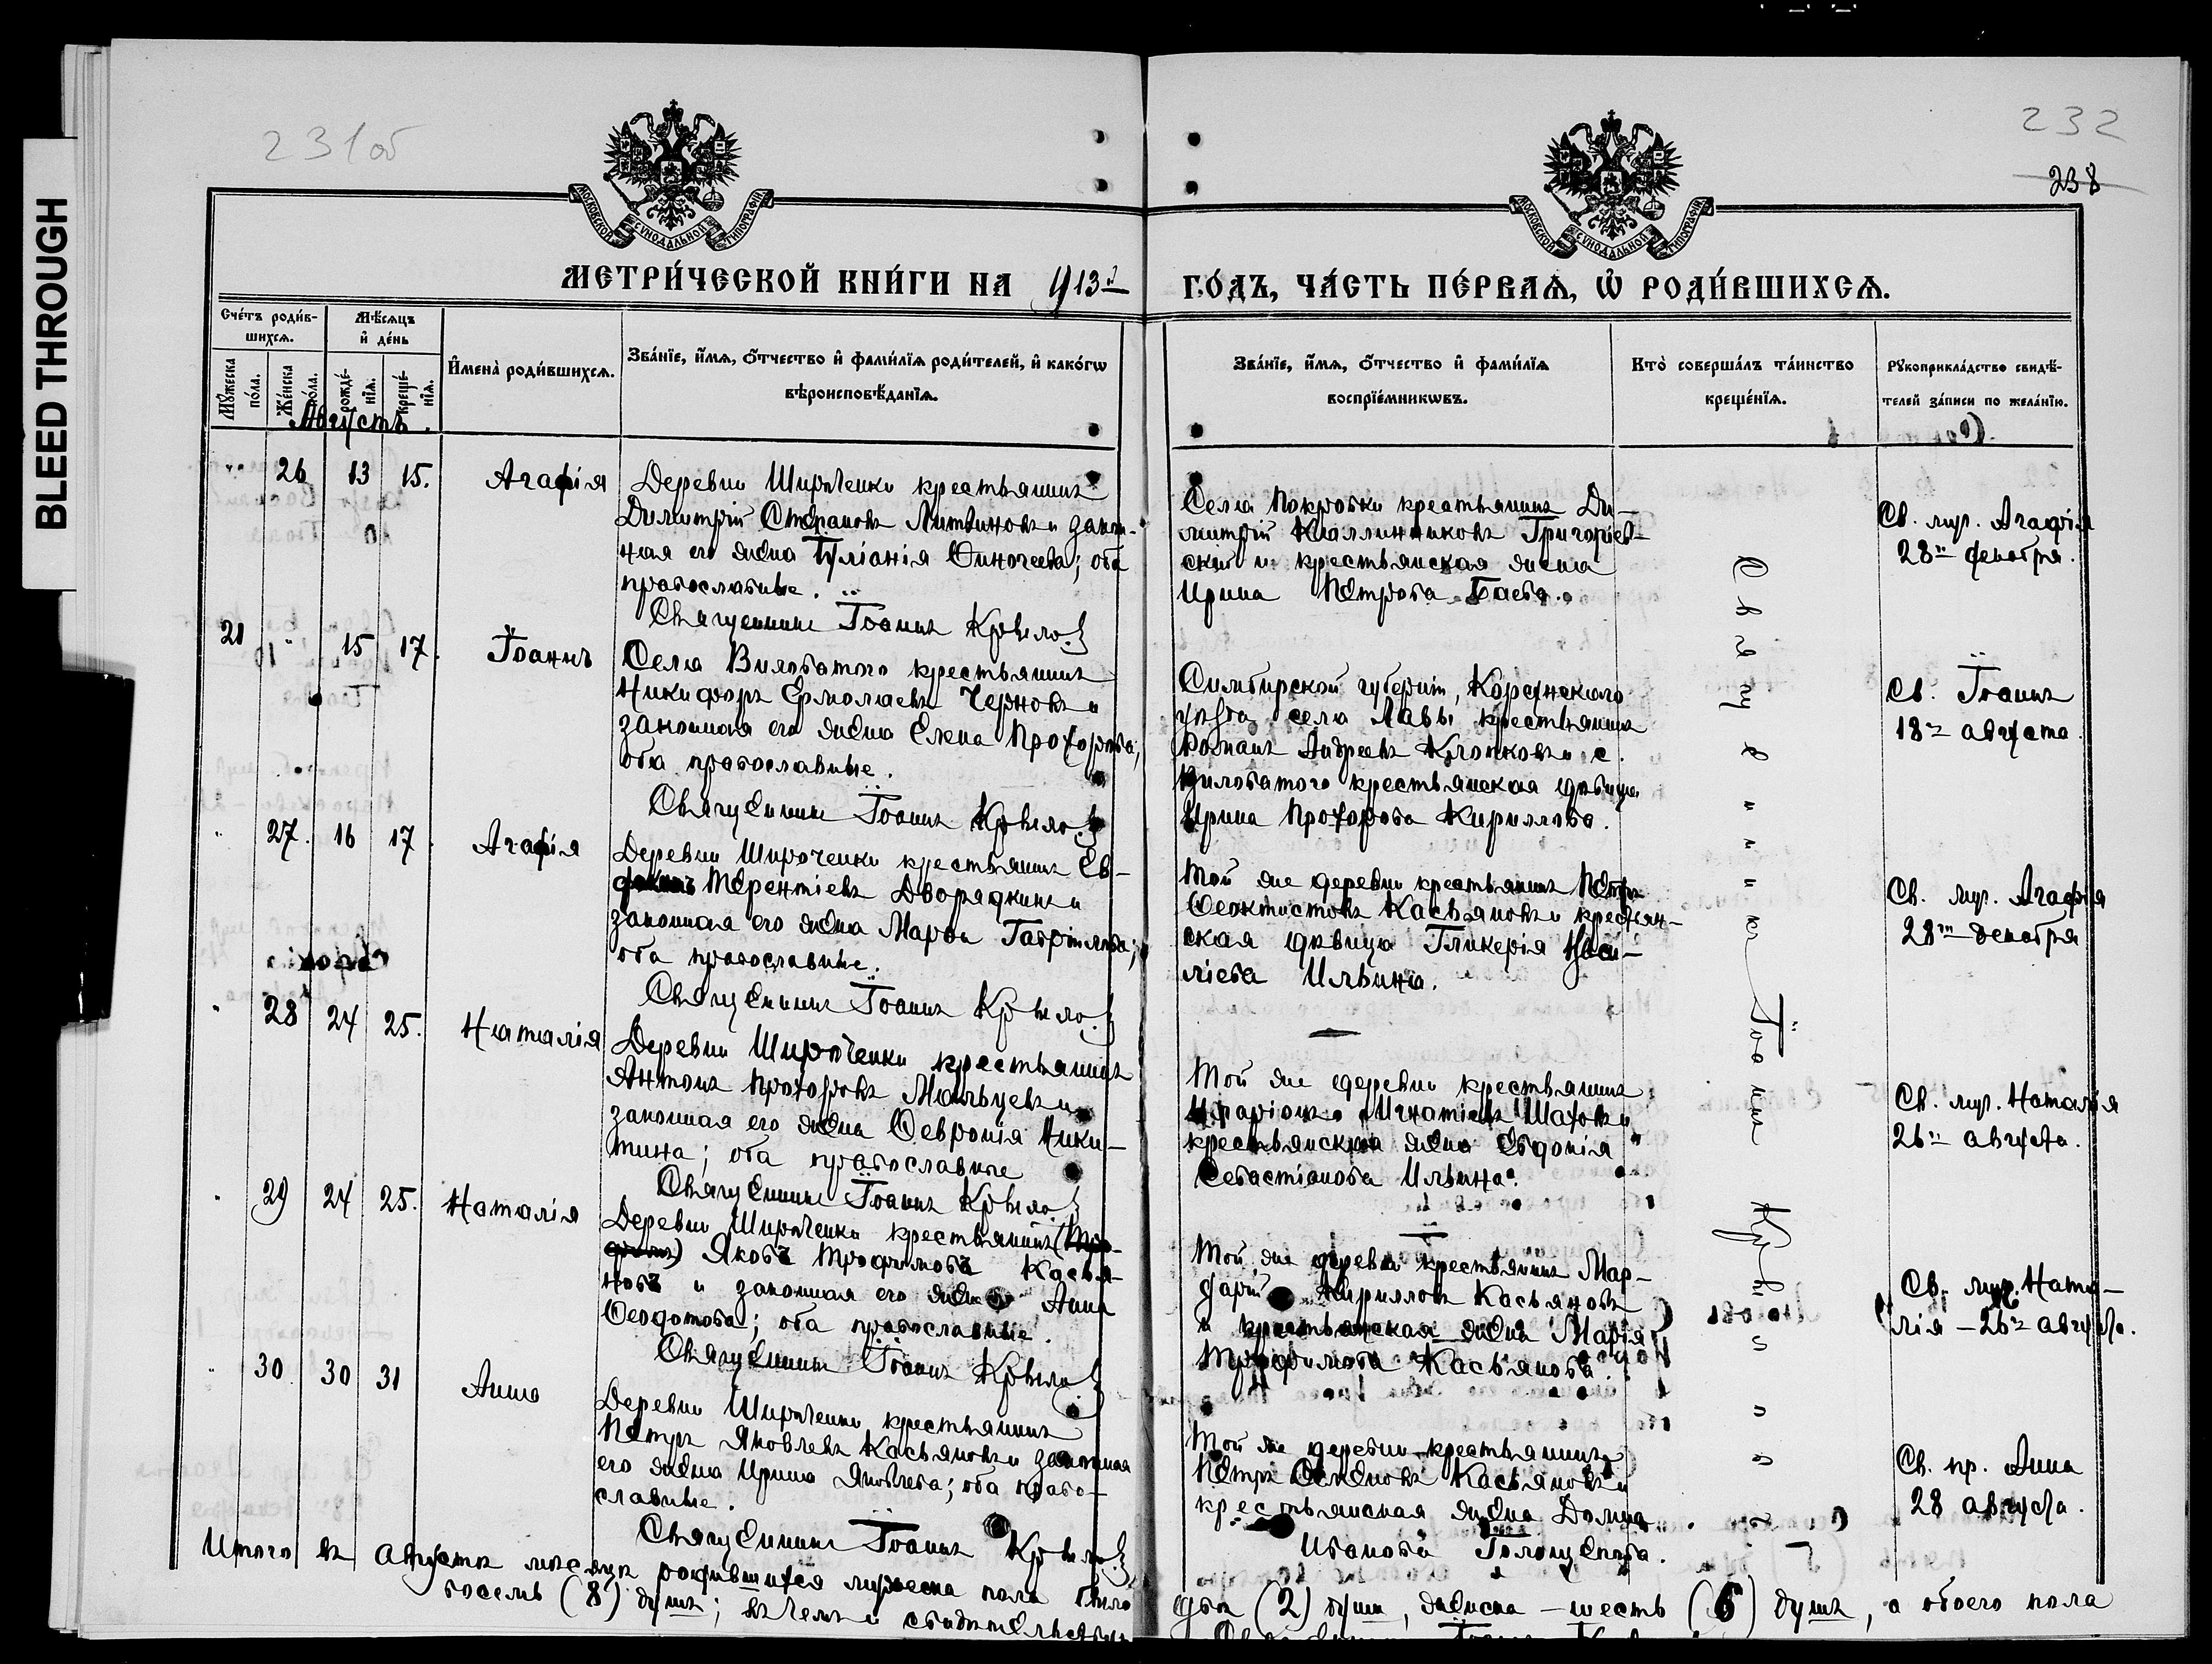 BLEED THROUGH
231об
232
238
МОСКОВСКОЙ СѴНОДАЛЬНОЙ ТИПОГРАФІИ
МОСКОВСКОЙ СѴНОДАЛЬНОЙ ТИПОГРАФІИ
МЕТРИ́ЧЕСКОЙ КНИ́ГИ НА 1913 г.
ГО́ДЪ, ЧА́СТЬ ПЕ́РВАѦ, Ѽ РОДИ́ВШИХСѦ.
Сче́тъ роди́в-
шихсѧ.
Мѣ́сѧцъ
и҆ де́нь
Мꙋ́жеска по́ла.
Же́нска по́ла.
рожде́-
нїѧ.
креще́-
нїѧ.
И҆мена̀ роди́вшихсѧ.
Зва́нїе, и҆́мѧ, ѻ҆́тчество и҆ фами́лїѧ роди́телей, и҆ како́гѡ
вѣроисповѣ́данїѧ.
Зва́нїе, и҆́мѧ, ѻ҆́тчество и҆ фами́лїѧ
воспрїе́мникѡвъ.
Кто̀ соверша́лъ та́инство
креще́нїѧ.
Рꙋкоприкла́дство свидѣ́-
телей за́писи по жела́нїю.
Августъ.
26 13 15. Агафія
Деревни Широченки крестьянинъ
Димитрій Стефановъ Литвиновъ и закон-
ная его жена Іуліанія ; оба
православные.
Священникъ Іоаннъ Крылов
Села Покровки крестьянинъ Ди-
митрій Каллинниковъ Григорьев-
скій и крестьянская жена
Ирина Петрова Баева.
Св. муч. Агафія
28 декабря.
21 15 17. Іоаннъ
Села Виловатого крестьянинъ
Никифоръ Ермолаевъ Черновъ и
законная его жена Елена Прохорова;
оба православные.
Священникъ Іоаннъ Крылов
Симбирской губерніи, Корсунскаго
уѣзда села Лавы крестьянинъ
Романъ Андреевъ Клопковъ и с.
Виловатого крестьянская дѣвица
Ирина Прохорова Кириллова.
Св. Іоаннъ
18 августа.
27. 16 17. Агафія
Деревни Широченки крестьянинъ Ев-
Терентіевъ Дворядкинъ и
законная его жена Марѳа Гавріилова;
оба православные.
Священникъ Іоаннъ Крылов
Той же деревни крестьянинъ Петръ
Ѳеоктистовъ Касьяновъ и крестьян-
ская дѣвица Гликерія Васи-
ліева Ильина.
Св. муч. Агафія
28 декабря
28 24 25. Наталія
Деревни Широченки крестьянинъ
Антонъ Прохоровъ Мальцевъ и
законная его жена Ѳевронія Ники-
тина; оба православные
Священникъ Іоаннъ Крылов
Той же деревни крестьянинъ
Иларіонъ Игнатіевъ Шаховъ и
крестьянская жена Евдокія
Севастіанова Ильина.
Св. муч. Наталія
26 августа.
29 24 25. Наталія
Деревни Широченки крестьянинъ (Тро-
фимъ) Яковъ Трофимовъ Касья-
новъ и законная его жена Анна
Ѳеодотова; оба православные.
Священникъ Іоаннъ Крылов
Той же деревни крестьянинъ Мар-
дарій Кирилловъ Касьяновъ
и крестьянская жена Марія
Трофимова Касьянова.
Св. муч. Ната-
лія - 26 августа.
30 30 31 Анна
Деревни Широченки крестьянинъ
Петръ Яковлевъ Касьяновъ и законная
его жена Ирина Яковлева; оба право-
славные.
Священникъ Іоаннъ Крылов
Той же деревни крестьянинъ
Петръ Семеновъ Касьяновъ и
крестьянская жена Домна
Иванова Голощапова.
Св. пр. Анна
28 августа.
Священникъ Іоаннъ Крыловъ
Итого въ Августѣ мѣсяцѣ родившихся мужеска пола было
два (2) души, женска - шесть (6) душъ, а обоего пола
восемь (8) душъ; въ чемъ и свидѣтельствую